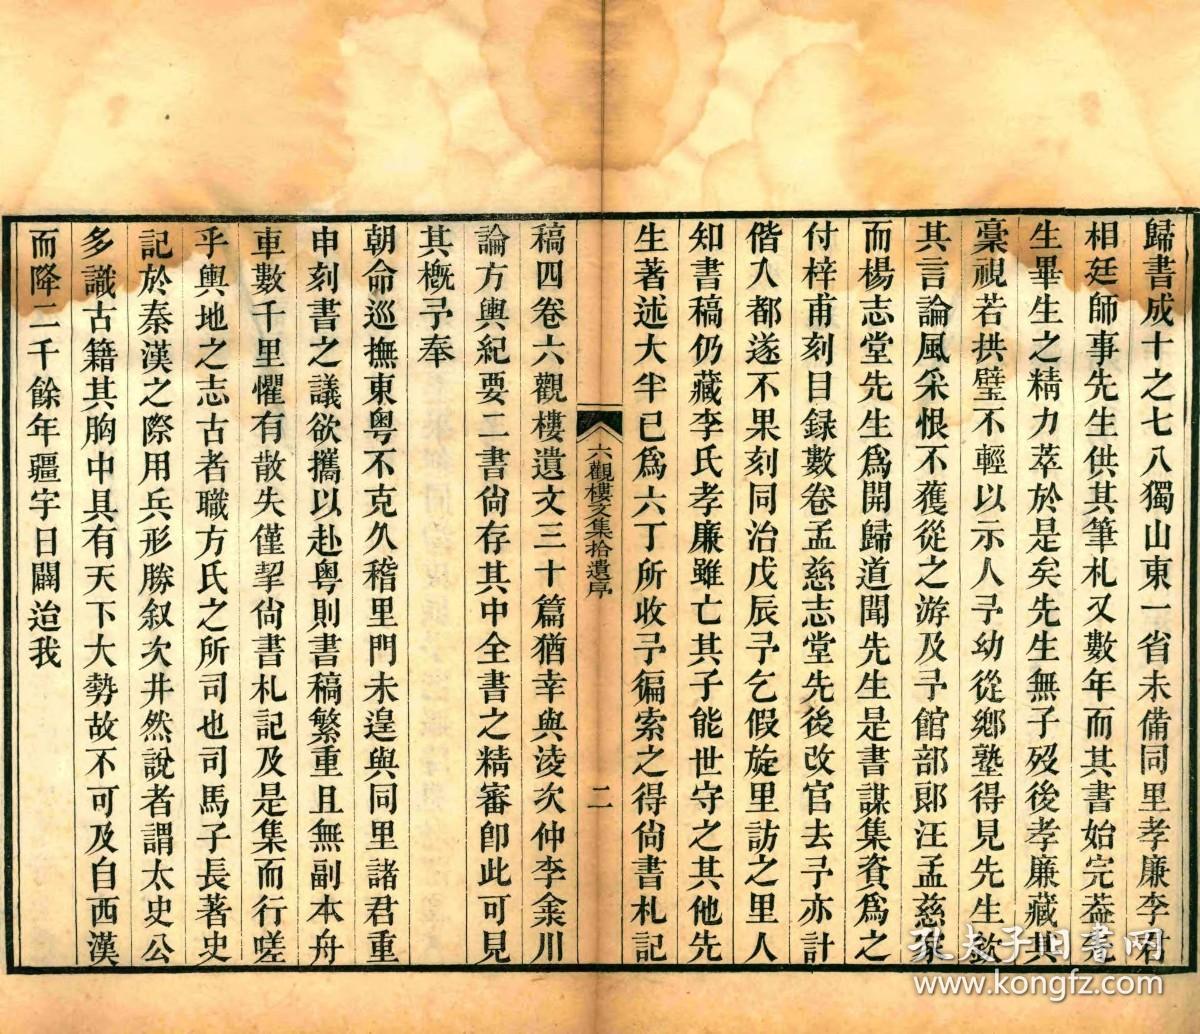 歸書成十之七八獨山東一省未備同里孝廉李君
相廷師事先生供其筆札又數年而其書始完葢先
生畢生之精力萃於是矣先生無子歿後孝廉藏其
稾視若拱璧不輕以示人予幼從鄉塾得見先生歙
其言論風采恨不獲從之游及予館部郞汪孟慈家
而楊志堂先生爲開歸道聞先生是書謀集資爲之
付梓甫刻目録數卷孟慈志堂先後改官去予亦計
偕入都遂不果刻同治戊辰予乞假旋里訪之里人
知書稿仍藏李氏孝廉雖亡其子能世守之其他先
生著述大半已爲六丁所收予徧索之得尙書札記
六觀樓文集拾遺序
二
稿四卷六觀樓遺文三十篇猶幸與淩次仲李釡川
論方輿紀要二書尙存其中全書之精審卽此可見
其槪予奉
朝命巡撫東粵不克久稽里門未遑與同里諸君重
申刻書之議欲攜以赴粵則書稿繁重且無副本舟
車數千里懼有散失僅挈尙書札記及是集而行嗟
乎輿地之志古者職方氏之所司也司馬子長著史
記於秦漢之際用兵形勝叙次井然說者謂太史公
多識古籍其胸中具有天下大勢故不可及自西漢
而降二千餘年疆宇日闢迨我
孔夫子旧书网
www.kongfz.com